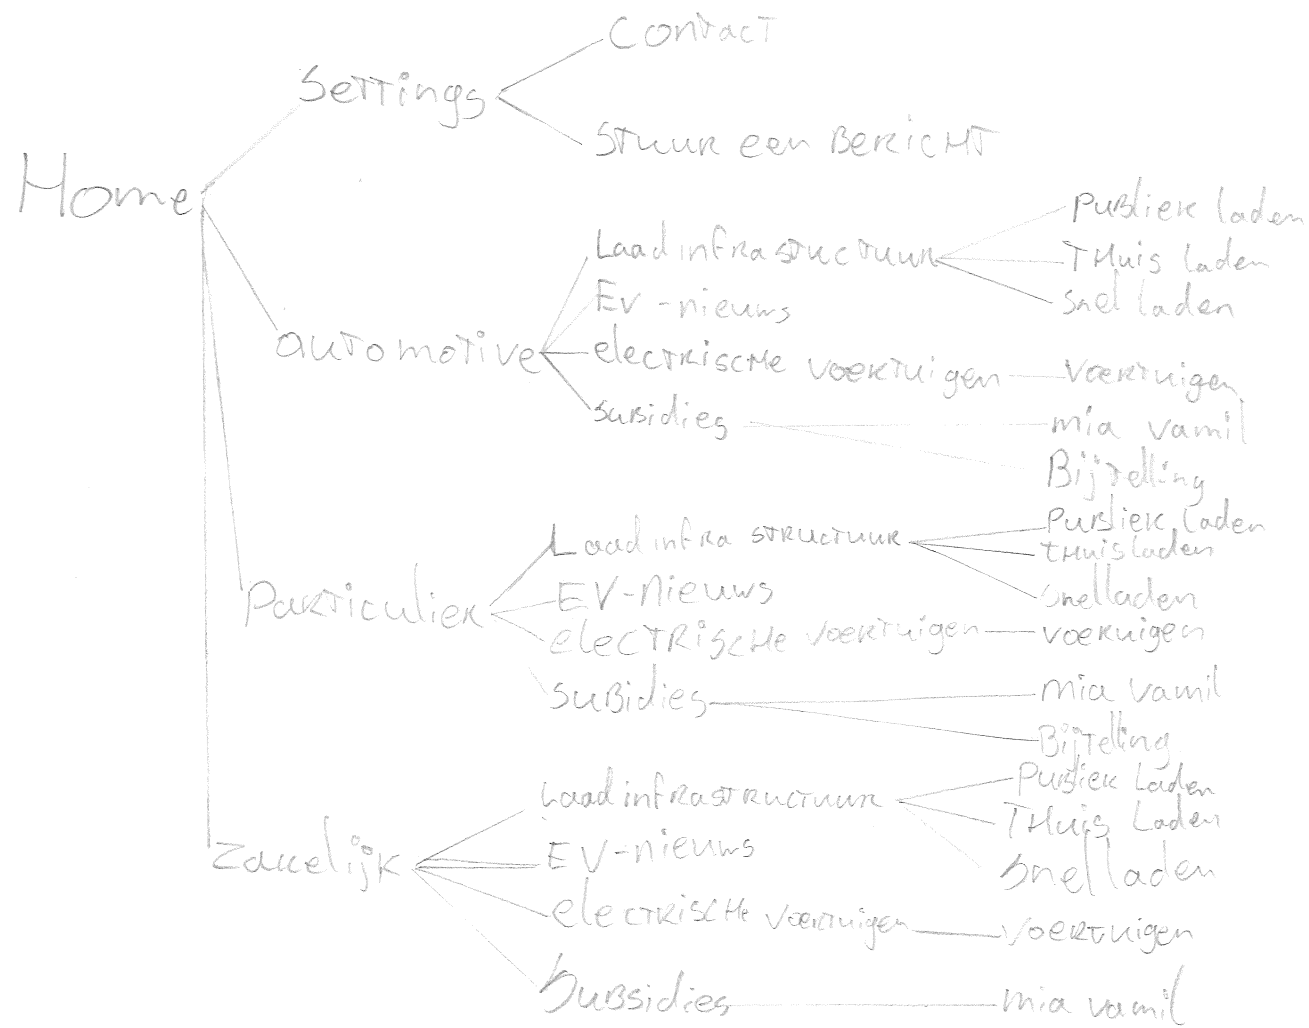 Home
Settings
Contact
Stuur een Bericht
automotive
Laadinfrastuctuur
Publiek laden
Thuis laden
Snel laden
EV-nieuws
electrische voertuigen
voertuigen
subidies
mia vamil
Bijtelling
Particulier
Laadinfra structuur
Publiek laden
thuisladen
snelladen
EV-nieuws
electrische voertuigen
voeruigen
suBidies
mia vamil
Bijtelling
Zakelijk
Laadinfrastructuur
Publiek Laden
Thuis Laden
Snelladen
EV-nieuws
electrische voertuigen
Voertuigen
Subsidies
mia vamil